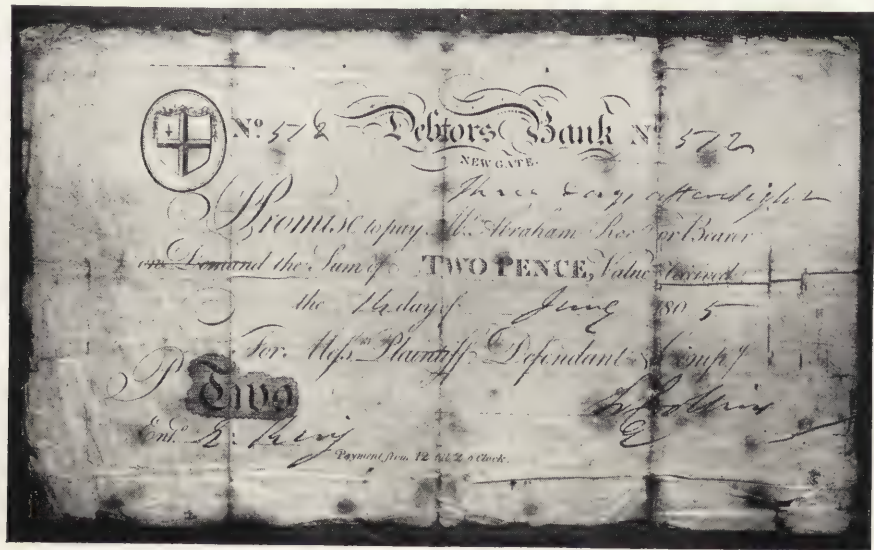 No 572 Debtors Bank No 572
NEWGATE.
Three days after sight
I Promise to pay Mr. Abraham or Bearer
on Demand the Sum of TWO PENCE, Value received
the 14 day of June 1805
For Messrs Plaintiff Defendant & Compy
P Two
Entd
Payment from 12 till 2 o Clock.